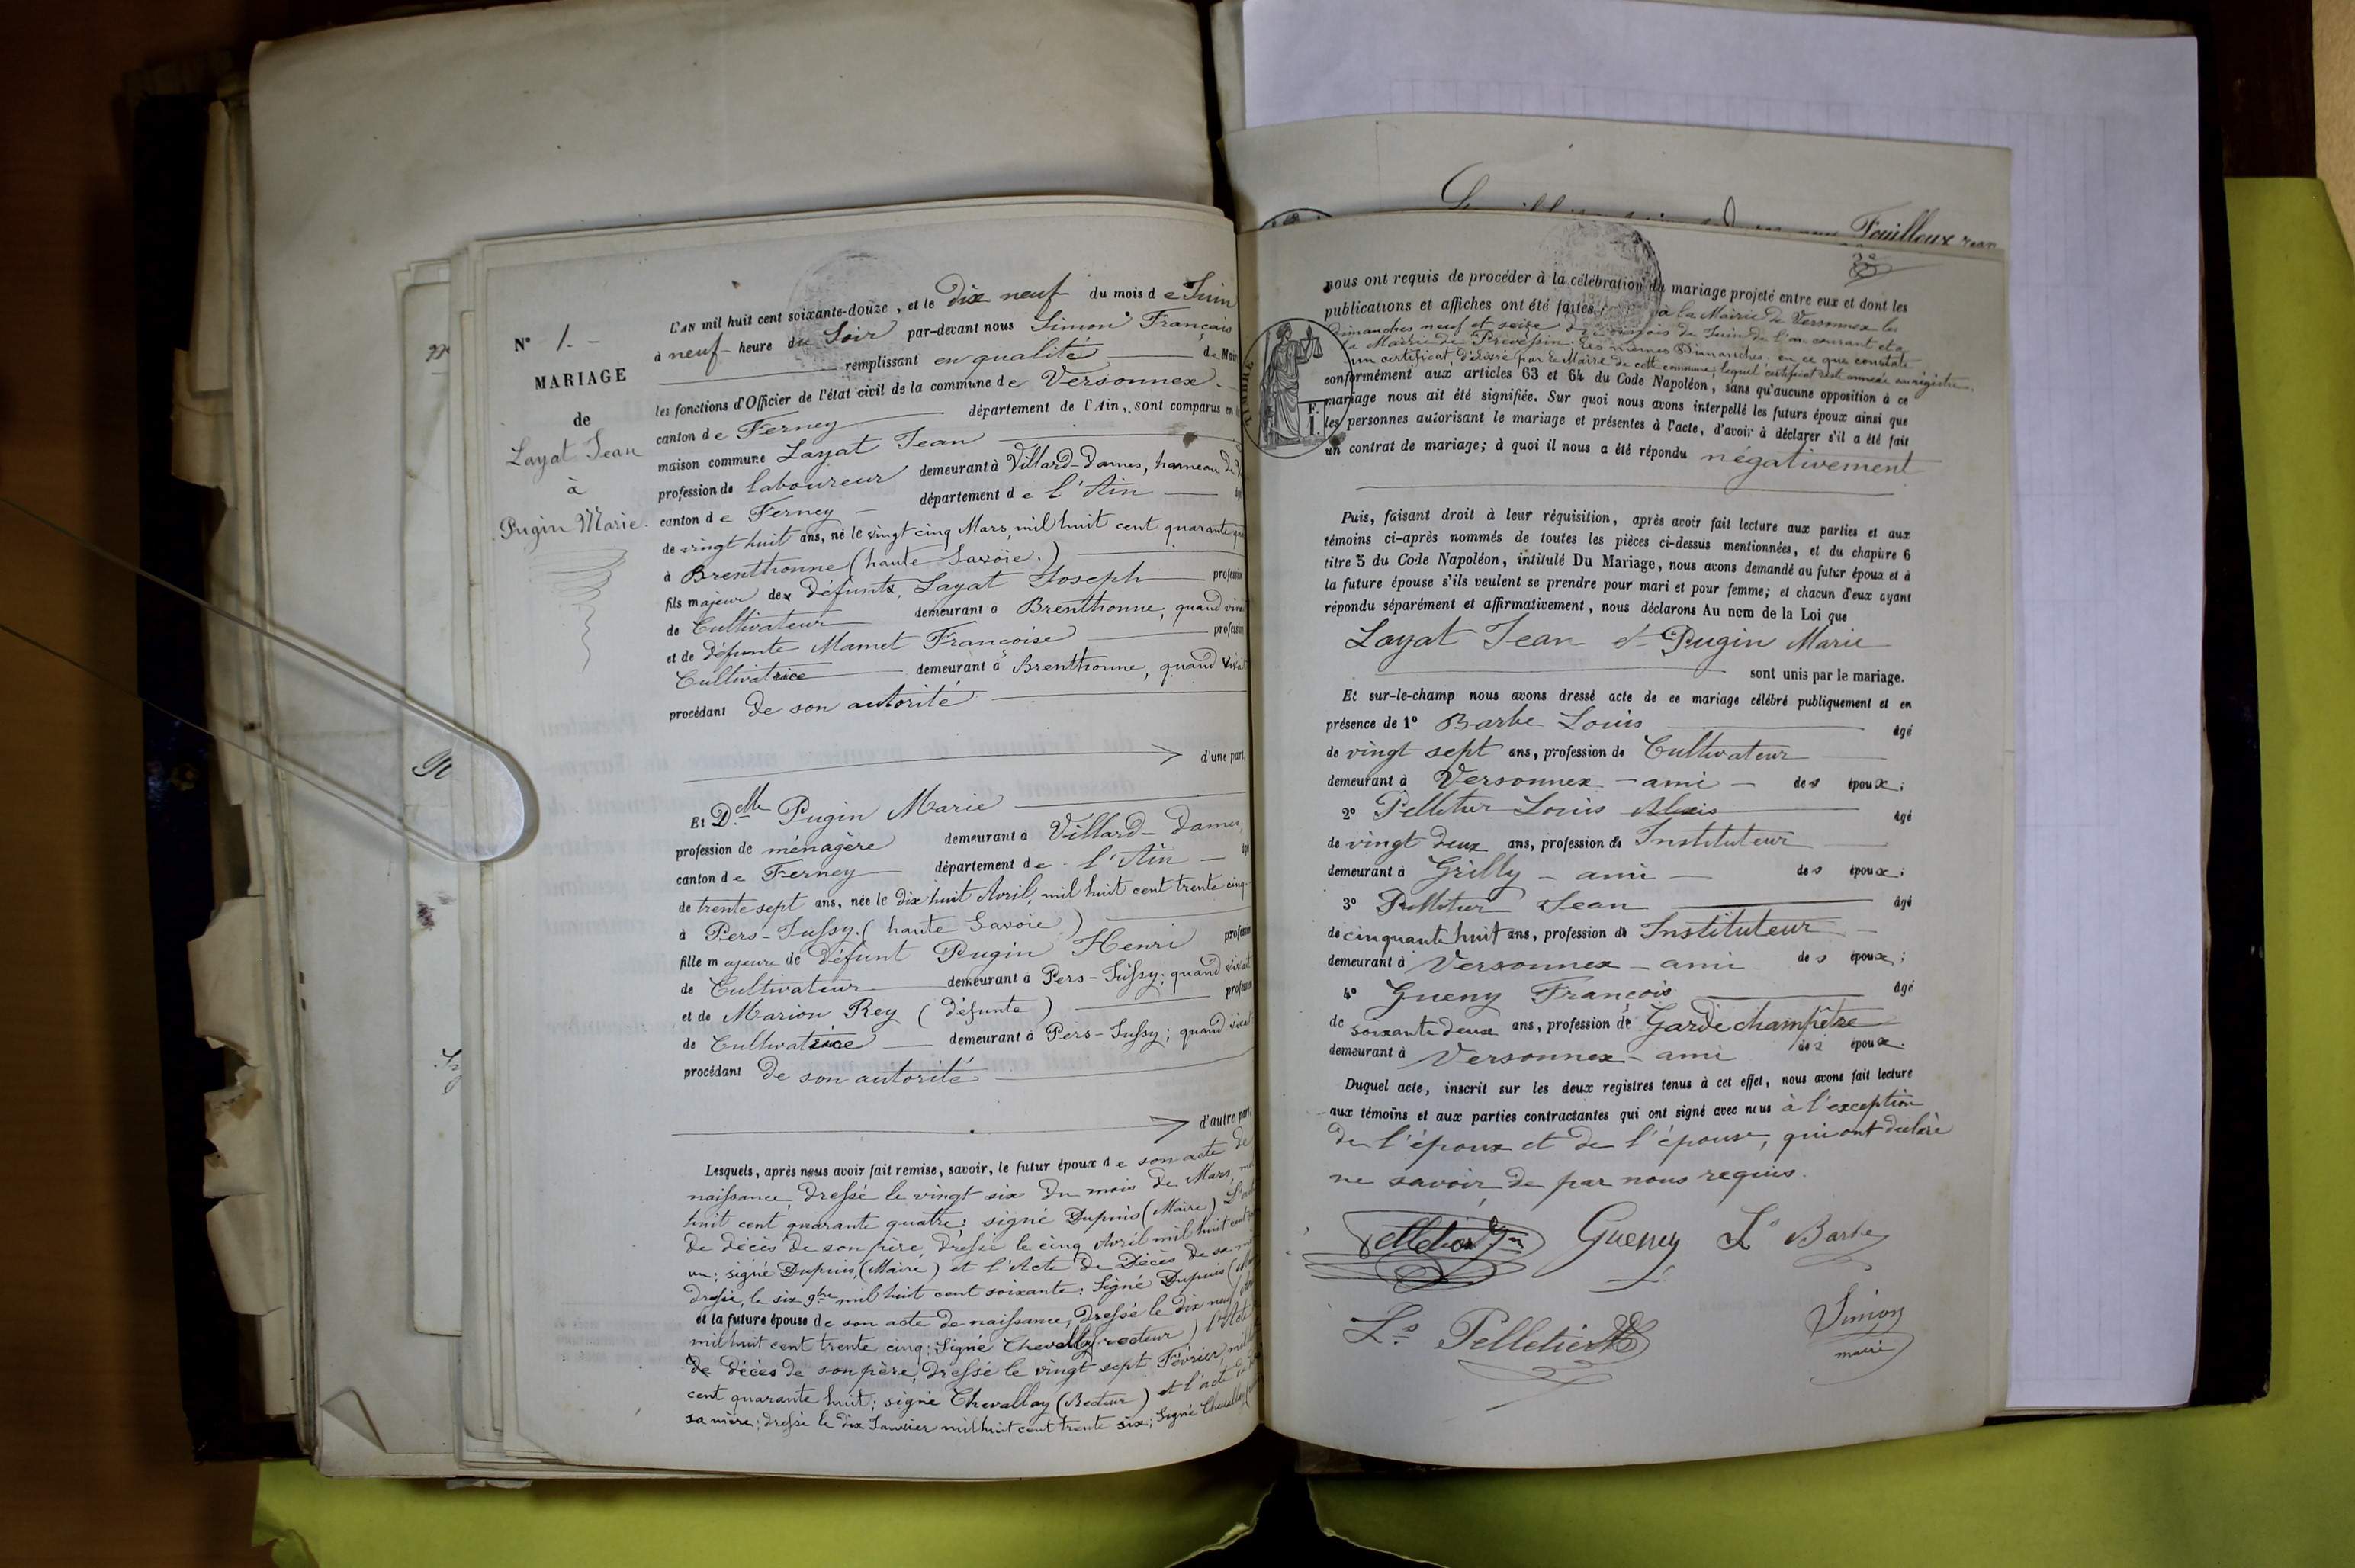 N° 1. -
MARIAGE
de
Layat Jean
à
Pugin Marie.
L'AN mil huit cent soixante-douze, et le dix neuf du mois de Juin
à neuf - heure du Soir par-devant nous Simon François
remplissant en qualité de Mai
les fonctions d'Officier de l'état civil de la commune de Versonnex.
canton de Ferney département de l'Ain, sont comparus en
maison commune Layat Jean
profession de laboureur demeurant à Villard-Dames, hameau de
canton de Ferney - département de l'Ain
de vingt huit ans, né le vingt cinq Mars, mil huit cent quarante
à Brenthonne (haute Savoie.)
fils majeur de défunts, Layat Joseph profession
de Cultivateur demeurant à Brenthonne, quand
et de défunte Mamet Francoise profession
Cultivatrice demeurant à Brenthonne, quand
procédant de son autorité
d'une part,
Et D.elle Pugin Marie
profession de ménagère demeurant à Villard-Dames,
canton de Ferney département de l'Ain -
de trente sept ans, née le dix huit Avril, mil huit cent trente cinq
à Pers-Jussy. (haute Savoie)
fille majeure de défunt Pugin Henri profession
de Cultivateur demeurant à Pers-Jussy; quand
et de Marion Rey (défunte) profession
de Cultivatrice demeurant à Pers-Jussy; quand
procédant de son autorité
d'autre part,
Lesquels, après nous avoir fait remise, savoir, le futur époux de son acte de
naissance, dressé le vingt six du mois de Mars,
huit cent quarante quatre; signé Dupuis (Maire)
de décès de son père, dressé le cinq Avril mil huit cent
un; signé Dupuis, (Maire) et l'Acte de Décès de sa
dressé, le six 9bre mil huit cent soixante: Signé Dupuis
et la future épouse de son acte de naissance, dressé le dix neuf
mil huit cent trente cinq; Signé Chevallay (recteur) l'Acte
de décès de son père, dressé le vingt sept Février, mil
cent quarante huit; signé Chevallay (Recteur) et l'acte
sa mère; dressé le dix Janvier mil huit cent trente six; Signé
Fouilloux
nous ont requis de procéder à la célébration du mariage projeté entre eux et dont les
publications et affiches ont été faites, à la Mairie de Versonnex les
dimanches neuf et seize du mois de Juin de l'an courant et à
la Mairie de Prévessin, les mêmes Dimanches; en ce que constate
un certificat délivré par le Maire de cette commune; lequel certificat est annexé au registre.
conformément aux articles 63 et 64 du Code Napoléon, sans qu'aucune opposition à ce
mariage nous ait été signifiée. Sur quoi nous avons interpellé les futurs époux ainsi que
les personnes autorisant le mariage et présentes à l'acte, d'avoir à déclarer s'il a été fait
un contrat de mariage; à quoi il nous a été répondu négativement
Puis, faisant droit à leur réquisition, après avoir fait lecture aux parties et aux
témoins ci-après nommés de toutes les pièces ci-dessus mentionnées, et du chapitre 6
titre 5 du Code Napoléon, intitulé Du Mariage, nous avons demandé au futur époux et à
la future épouse s'ils veulent se prendre pour mari et pour femme; et chacun d'eux ayant
répondu séparément et affirmativement, nous déclarons Au nom de la Loi que
Layat Jean et Pugin Marie
sont unis par le mariage.
Et sur-le-champ nous avons dressé acte de ce mariage célébré publiquement et en
présence de 1° Barbe Louis âgé
de vingt sept ans, profession de Cultivateur
demeurant à Versonnex - ami - des époux;
2° Pelletier Louis Alexis âgé
de vingt deux ans, profession de Instituteur
demeurant à Grilly - ami - des époux;
3° Pelletier Jean âgé
de cinquante huit ans, profession de Instituteur
demeurant à Versonnex - ami des époux;
4° Gueny François âgé
de soixante deux ans, profession de Garde champêtre
demeurant à Versonnex - ami des époux.
Duquel acte, inscrit sur les deux registres tenus à cet effet, nous avons fait lecture
aux témoins et aux parties contractantes qui ont signé avec nous à l'exception
de l'époux et de l'épouse, qui ont déclaré
ne savoir de par nous requis.
Pelletier Jn Gueney Ls Barbe
Ls Pelletier
Simon
maire